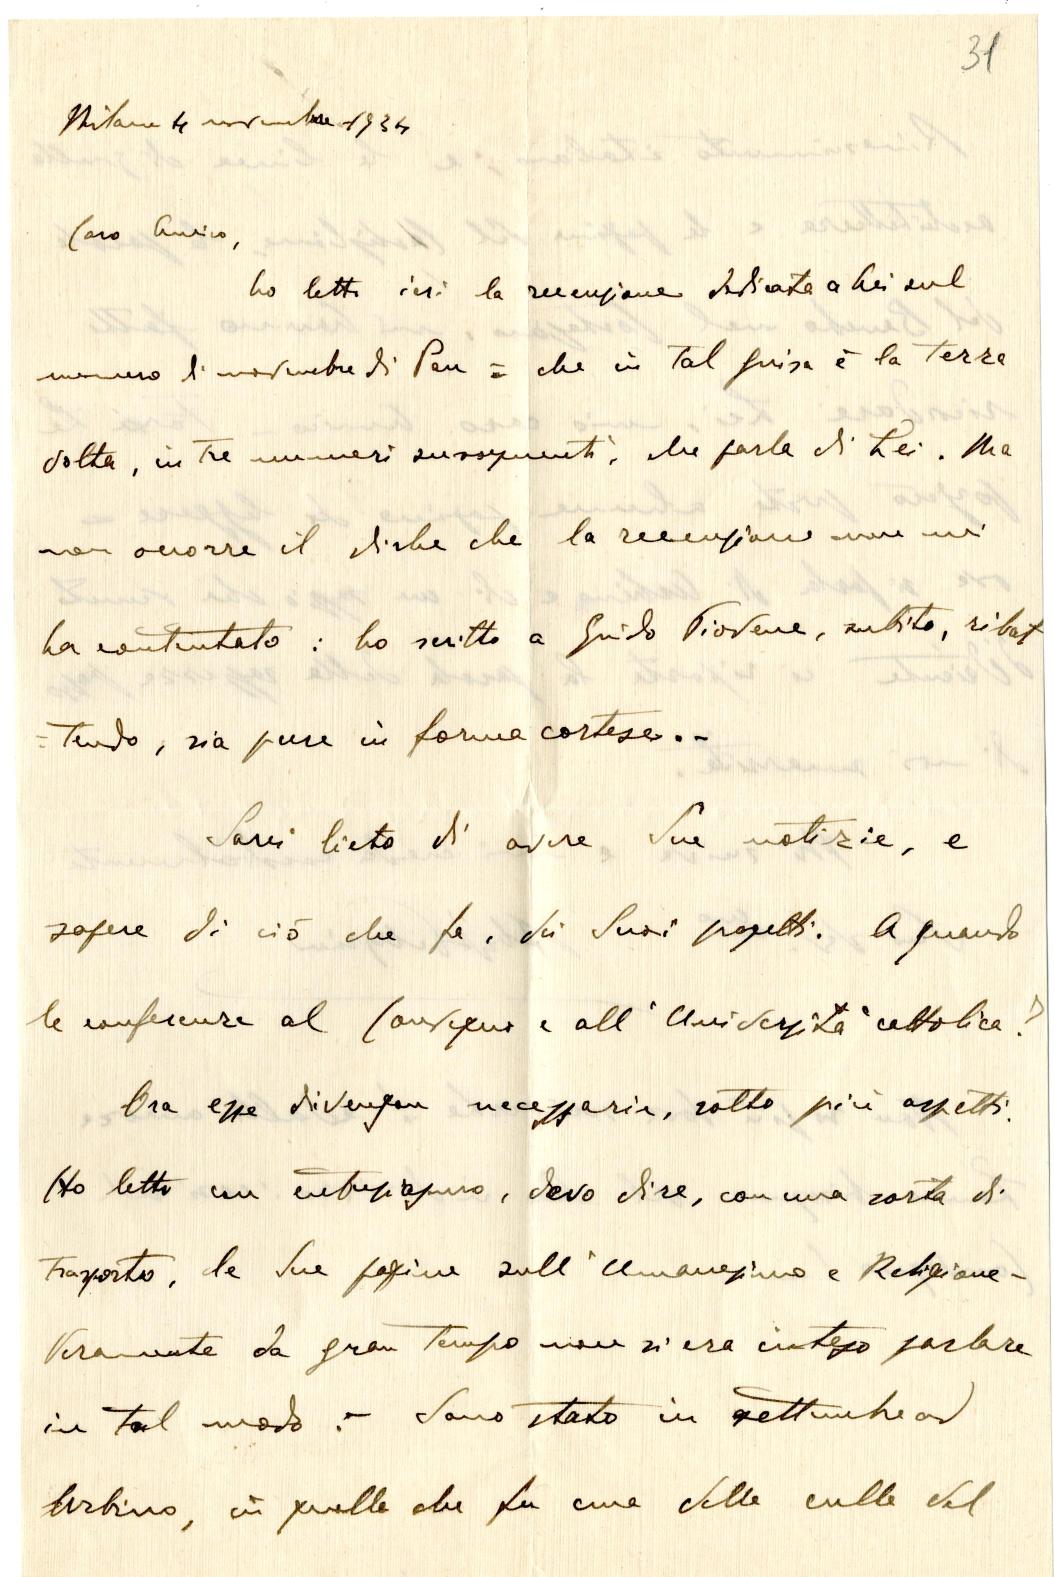 31
Milano 4 novembre 1934
Caro Amico,
ho letto ieri la recensione dedicata a Lei sul
numero di novembre di Pan = che in tal guisa è la terza
volta, in tre numeri susseguenti, che parla di Lei. Ma
non occorre il dirle che la recensione non mi
ha contentato : ho scritto a Guido Piovene, subito, ribat
=tendo, sia pure in forma cortese. -
Sarei lieto di avere Sue notizie, e
sapere di ciò che fa, dei Suoi progetti. A quando
le conferenze al Convegno e all'Università cattolica?
Ora esse divengon necessarie, sotto più aspetti.
Ho letto con entusiasmo, devo dire, con una sorta di
trasporto, le Sue pagine sull'Umanesimo e Religione -
Veramente da gran tempo non si era inteso parlare
in tal modo. - Sono stato in settembre ad
Urbino, in quella che fu una delle culle del